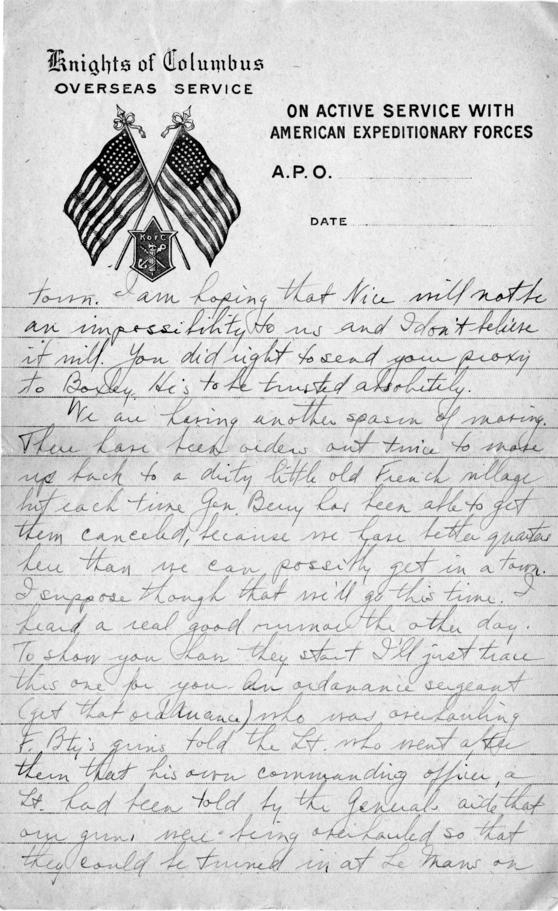 Knights of Columbus
OVERSEAS SERVICE
ON ACTIVE SERVICE WITH
AMERICAN EXPEDITIONARY FORCES
A.P.O.
DATE
K of C
town. I am hoping that Nice will not be
an impossibility to us and I don't believe
it will. You did right to send your proxy
to Boxley. He is to be trusted absolutely.
We are having another spasm of moving.
There have been orders out twice to move
us back to a dirty little old French village
but each time Gen. Berry has been able to get
them canceled, because we have better quarters
here than we can possibly get in a town.
I suppose though that we'll go this time. I
heard a real good rumor the other day.
To show you how they start I'll just trace
this one for you. An ordanance sergeant
(get that ordnance) who was overhauling
F. Bty's guns told the Lt. who went after
them that his own commanding officer, a
Lt. had been told by the Generals aide that
our guns were being overhauled so that
they could be turned in at Le Mans on